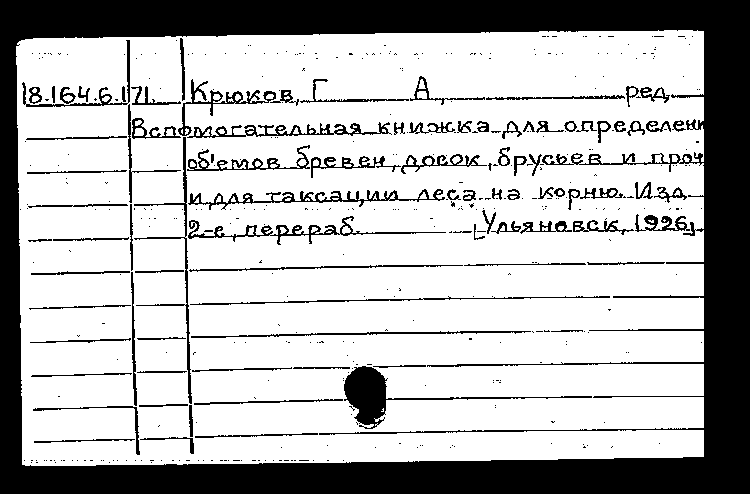 18.164.6.171. Крюков, Г А, ред.
Вспомогательная книжка для определени
об'емов бревен, досок, брусьев и проч
и для таксации леса на корню. Изд
2-е, перераб. [Ульяновск, 1926].